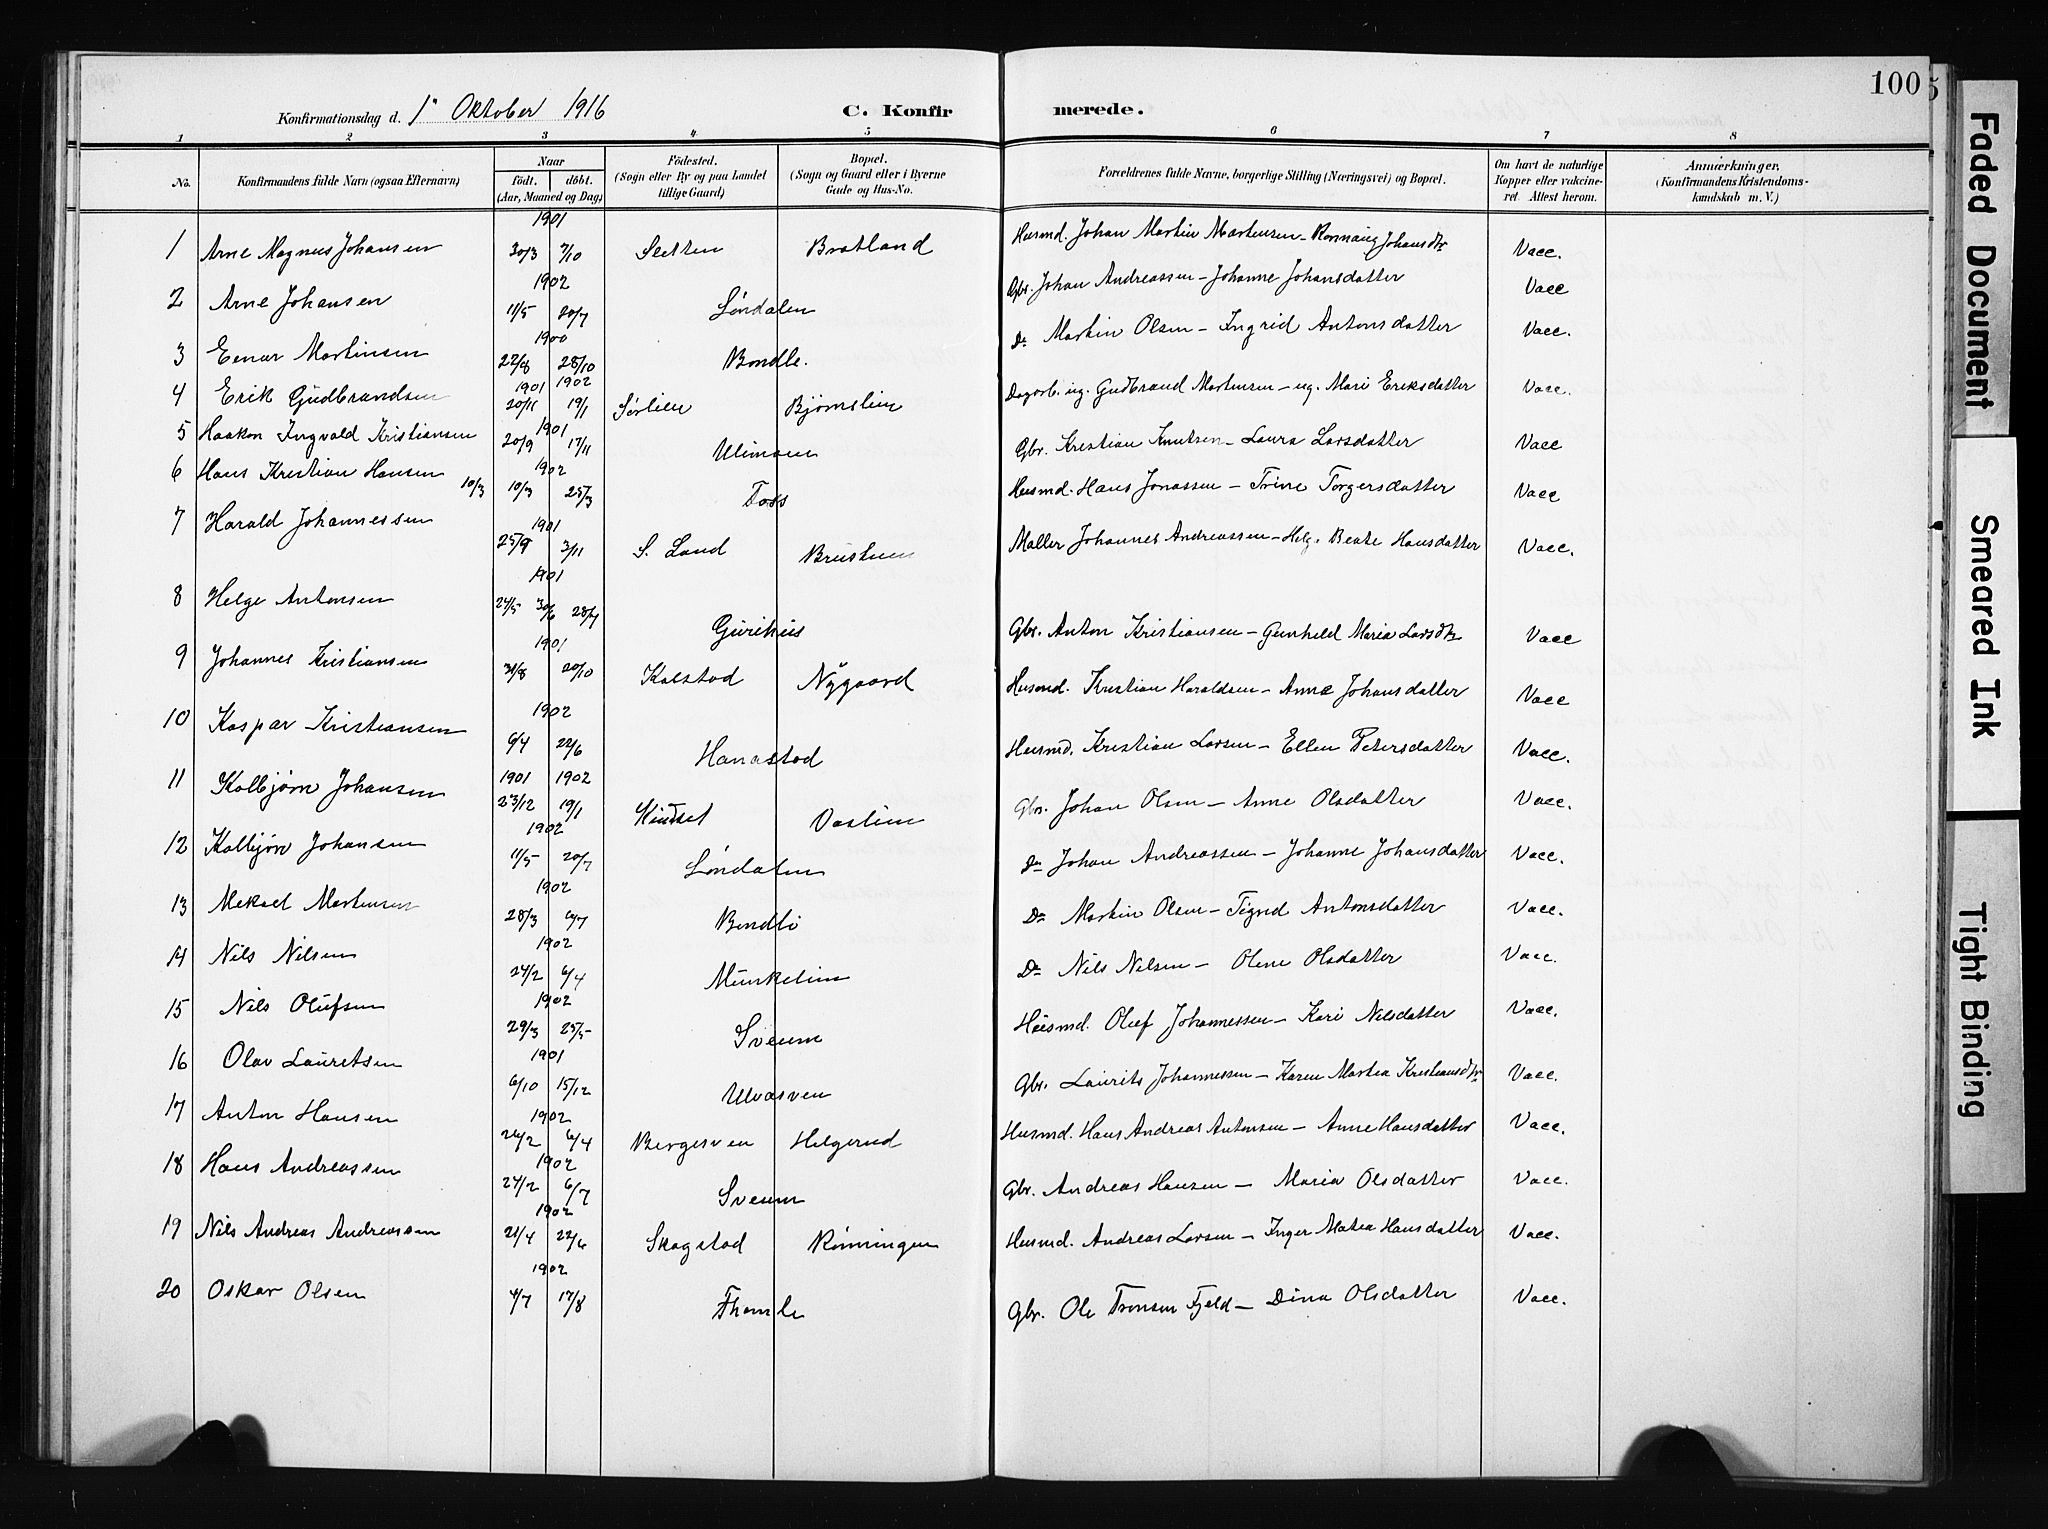 100
Konfirmationsdag d. 1ste Oktober 1916 C. Konfirmerede.
1 2 3 4 5 6 7 8
No. Konfirmandens fulde Navn (ogsaa Efternavn) Naar födt. döbt. (Aar, Maaned og Dag) Födested. (Sogn eller By og paa Landet tillige Gaard) Bopæl. (Sogn og Gaard eller i Byerne Gade og Hus-No. Forældrenes fulde Navne, borgerlige Stilling (Næringsvei) og Bopæl. Om havt de naturlige Kopper eller vakcineret. Attest herom. Anmærkninger. (Konfirmandens Kristendomskundskab m. V.)
1901
1 Arne Magnus Johansen 30/3 7/10 Sletten Bratland Husmd. Johan Martin Martinsen - Rønnaug Johansdtr Vacc.
1902
2 Arne Johansen 11/5 20/7 Søndalen Gbr. Johan Andreassen - Johanne Johansdatter Vacc
1900
3 Einar Martinsen 22/8 28/10 Bondle. Do Martin Olsen - Ingrid Antonsdatter Vacc.
1901 1902
4 Erik Gudbrandsen 20/11 19/1 Sørlien Bjørnslien Dagarb. ug. Gudbrand Martinsen - ug. Mari Eriksdatter Vacc.
1901
5 Haakon Ingvald Kristiansen 20/9 17/11 Ulimoen Gbr. Kristian Knutsen - Laura Larsdatter Vacc
1902
6 Hans Kristian Hansen 10/3 10/3 25/3 Foss Husmd. Hans Jonassen - Trine Torgersdatter Vacc
1901
7 Harald Johannessen 25/9 3/11 S. Land Brustuen Møller Johannes Andreassen - Helg. Beate Hansdatter Vacc.
1901
8 Helge Antonsen 24/5 30/6 28/7 Gurihus Gbr. Anton Kristiansen - Gunhild Maria Larsdtr Vacc
1901
9 Johannes Kristiansen 31/8 20/10 Kolstad Nygaard Husmd. Kristian Haraldsen - Anne Johansdatter Vacc
1902
10 Kaspar Kristiansen 6/4 22/6 Hanastad Husmd. Kristian Larsen - Ellen Petersdatter Vacc.
1901 1902
11 Kolbjørn Johansen 23/12 19/1 Hindset Oaslien Gbr. Johan Olsen - Anne Olsdatter Vacc.
1902
12 Kolbjørn Johansen 11/5 20/7 Søndalen Do Johan Andreassen - Johanne Johansdatter Vacc.
1902
13 Mekael Martinsen 28/3 6/7 Bondli Do Martin Olsen - Antonsdatter Vacc.
1902
14 Nils Nilsen 24/2 6/4 Munkelien Do Nils Nilsen - Olene Olsdatter Vacc.
1902
15 Nils Olufsen 29/3 25/5 Sveum Husmd. Oluf Johannessen - Kari Nilsdatter Vacc.
1901
16 Olav Lauretsen 6/10 15/12 Ulvasven Gbr. Laurits Johannessen - Karen Martea Kristiansdtr Vacc.
1902
17 Anton Hansen 26/2 6/4 Bergesven Helgerud Husmd. Hans Andreas Antonsen - Anne Hansdatter Vacc.
1902
18 Hans Andreassen 27/2 6/7 Sveum Gbr. Andreas Hansen - Maria Olsdatter Vacc.
1902
19 Nils Andreas Andreassen 21/4 22/6 Skogstad Rønningen Husmd. Andreas Larsen - Inger Matea Hansdatter Vacc.
1902
20 Oskar Olsen 4/7 17/8 Thomle Gbr. Ole Tronsen Fjeld - Dina Olsdatter Vacc.
Faded Document
Smeared Ink
Tight Binding